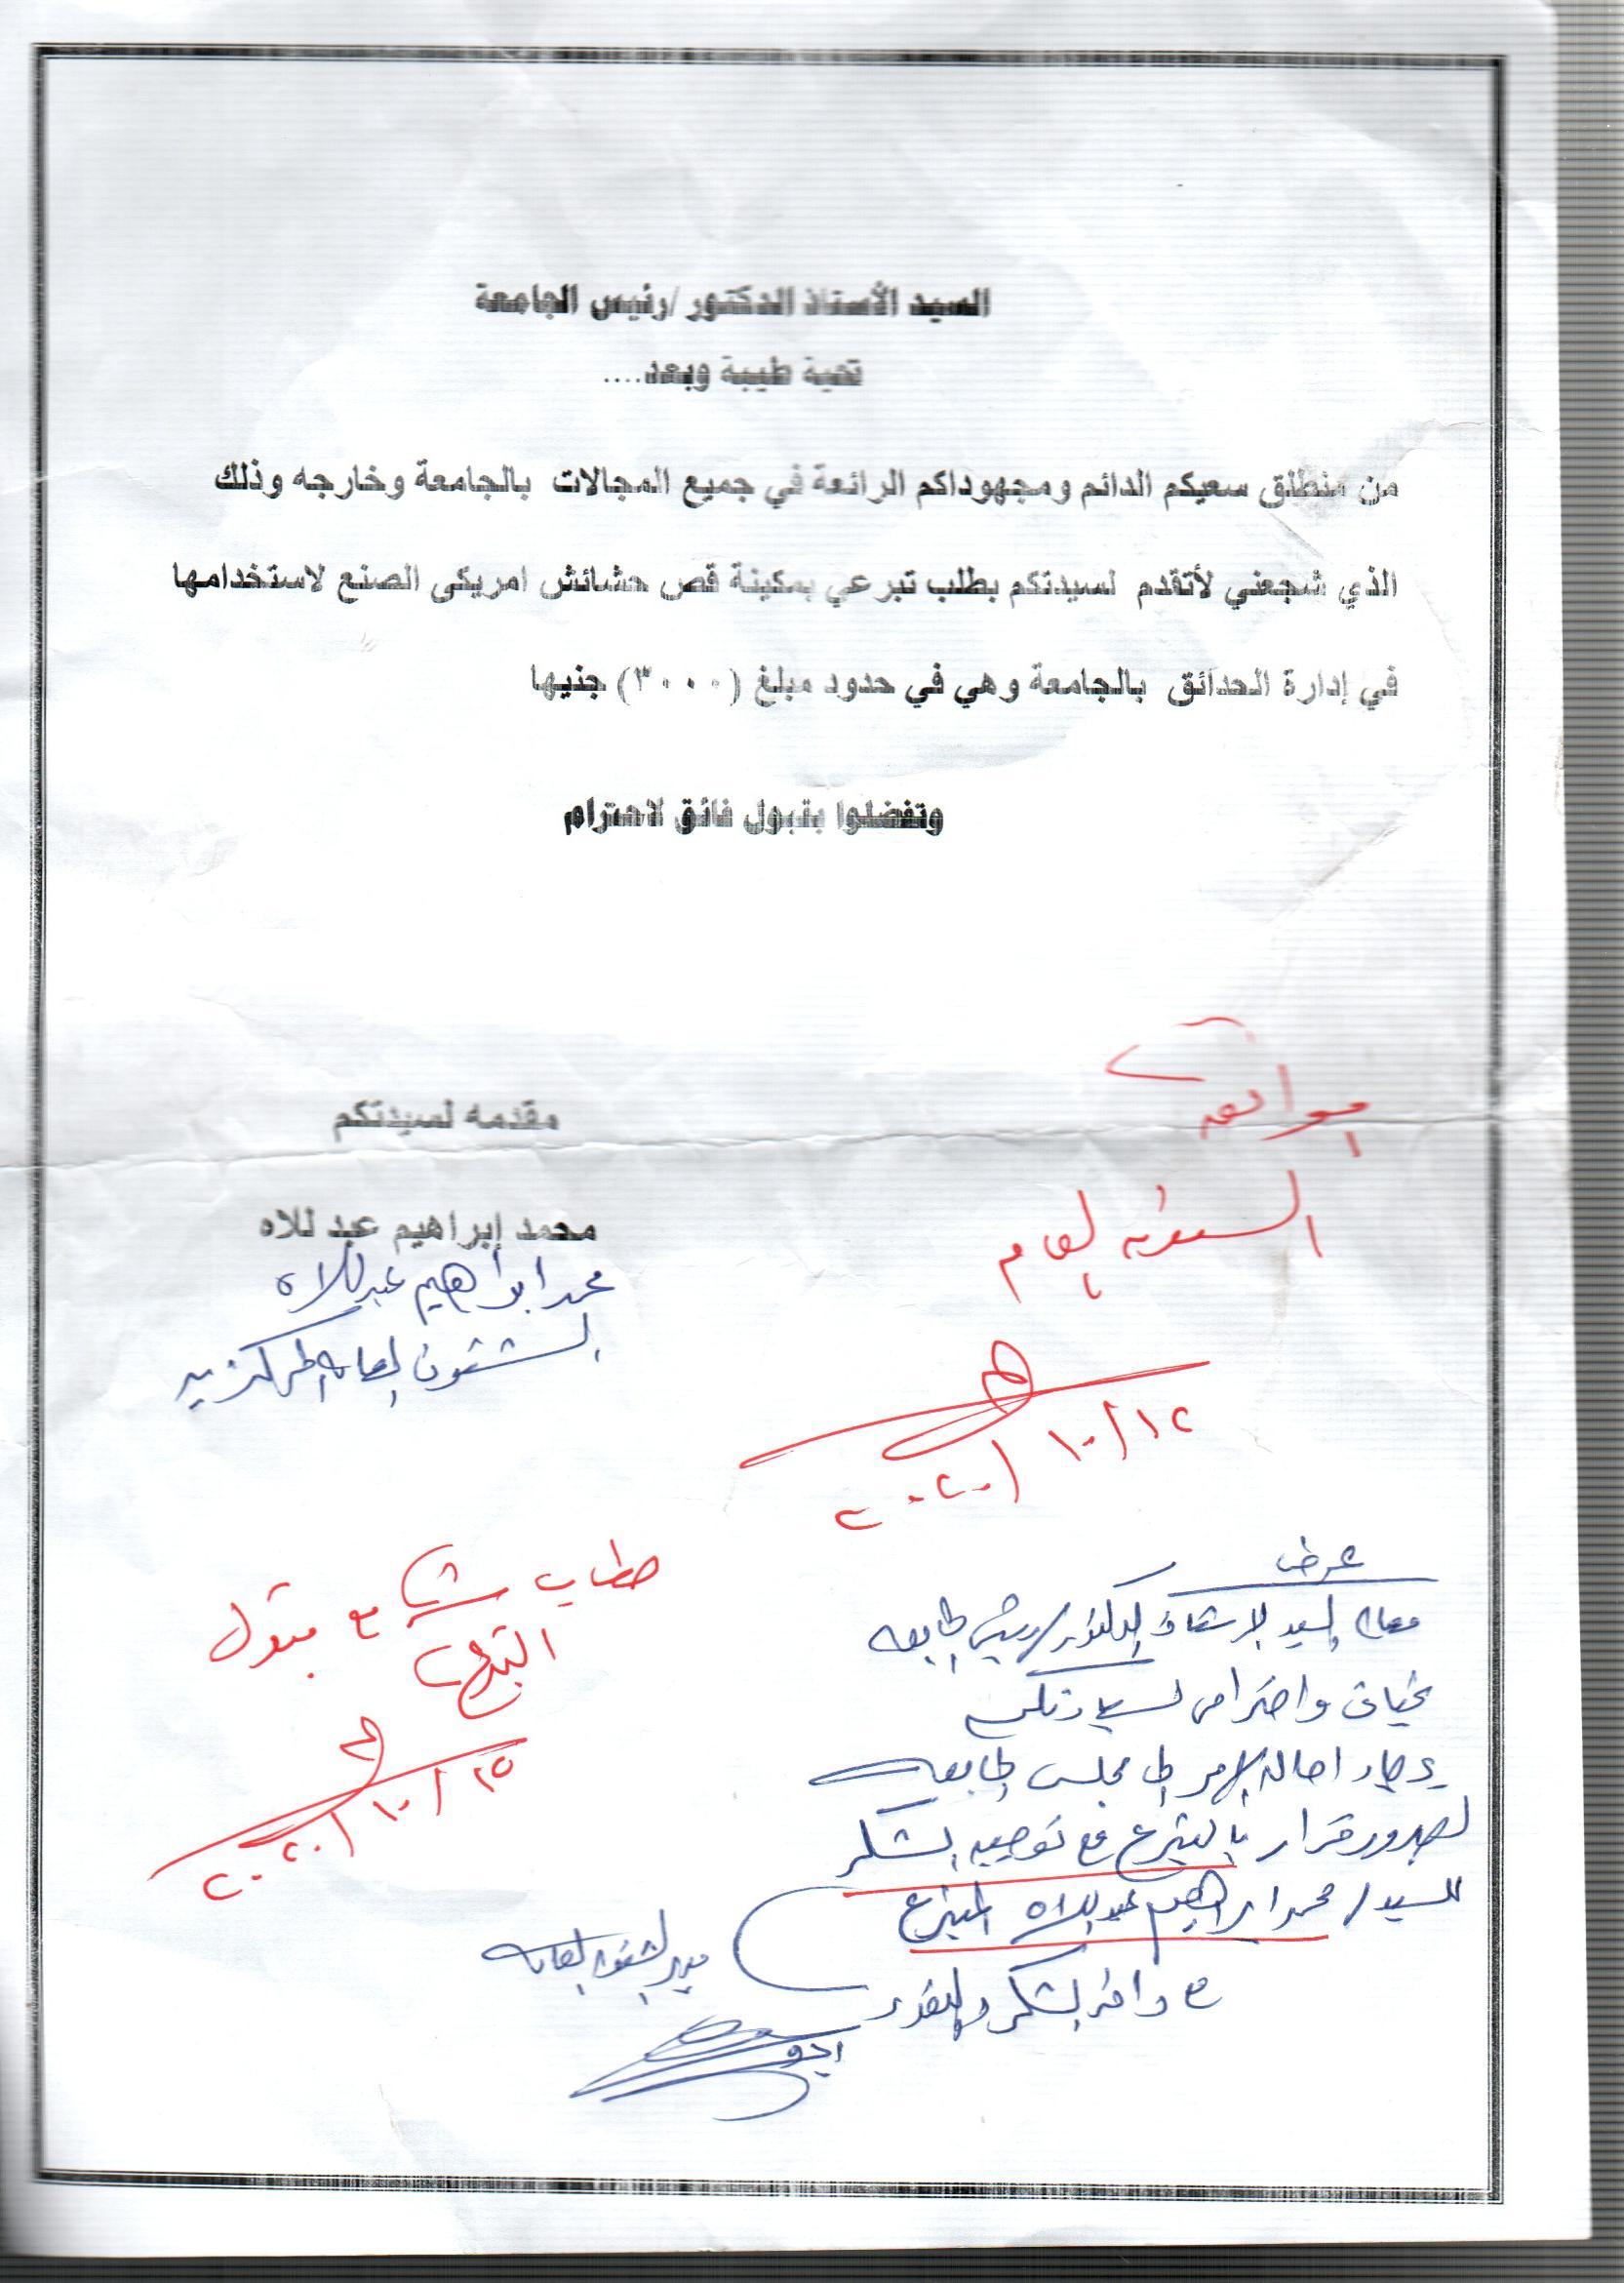 السيد الأستاذ الدكتور /رئيس الجامعة
تحية طيبة وبعد....
من منطلق سعيكم الدائم ومجهوداكم الرائعة في جميع المجالات بالجامعة وخارجه وذلك
الذي شجعني لأتقدم لسيدتكم بطلب تبرعي بمكينة قص حشائش امريكى الصنع لاستخدامها
في إدارة الحدائق بالجامعة وهي في حدود مبلغ (٣٠٠٠) جنيها
وتفضلوا بقبول فائق لاحترام
مقدمه لسيدتكم
محمد إبراهيم عبد للاه
محمد ابراهيم عبد اللاه
الشئون العامه المركزيه
موافقه
الشئون العامه
١٢/١٠/٢٠٢٠
عرض
معالى السيد الاستاذ الدكتور/رئيس الجامعه
تحياتى واحترامى لسيادتكم
برجاء احالة الامر الى مجلس الجامعه
لصدور قرار بالتبرع مع توجيه الشكر
للسيد/ محمد ابراهيم عبد اللاه المتبرع
مع وافر الشكر والتقدير
مدير الشئون العامه
خطاب شكر مع قبول
التبرع
١٥/١٠/٢٠٢٠